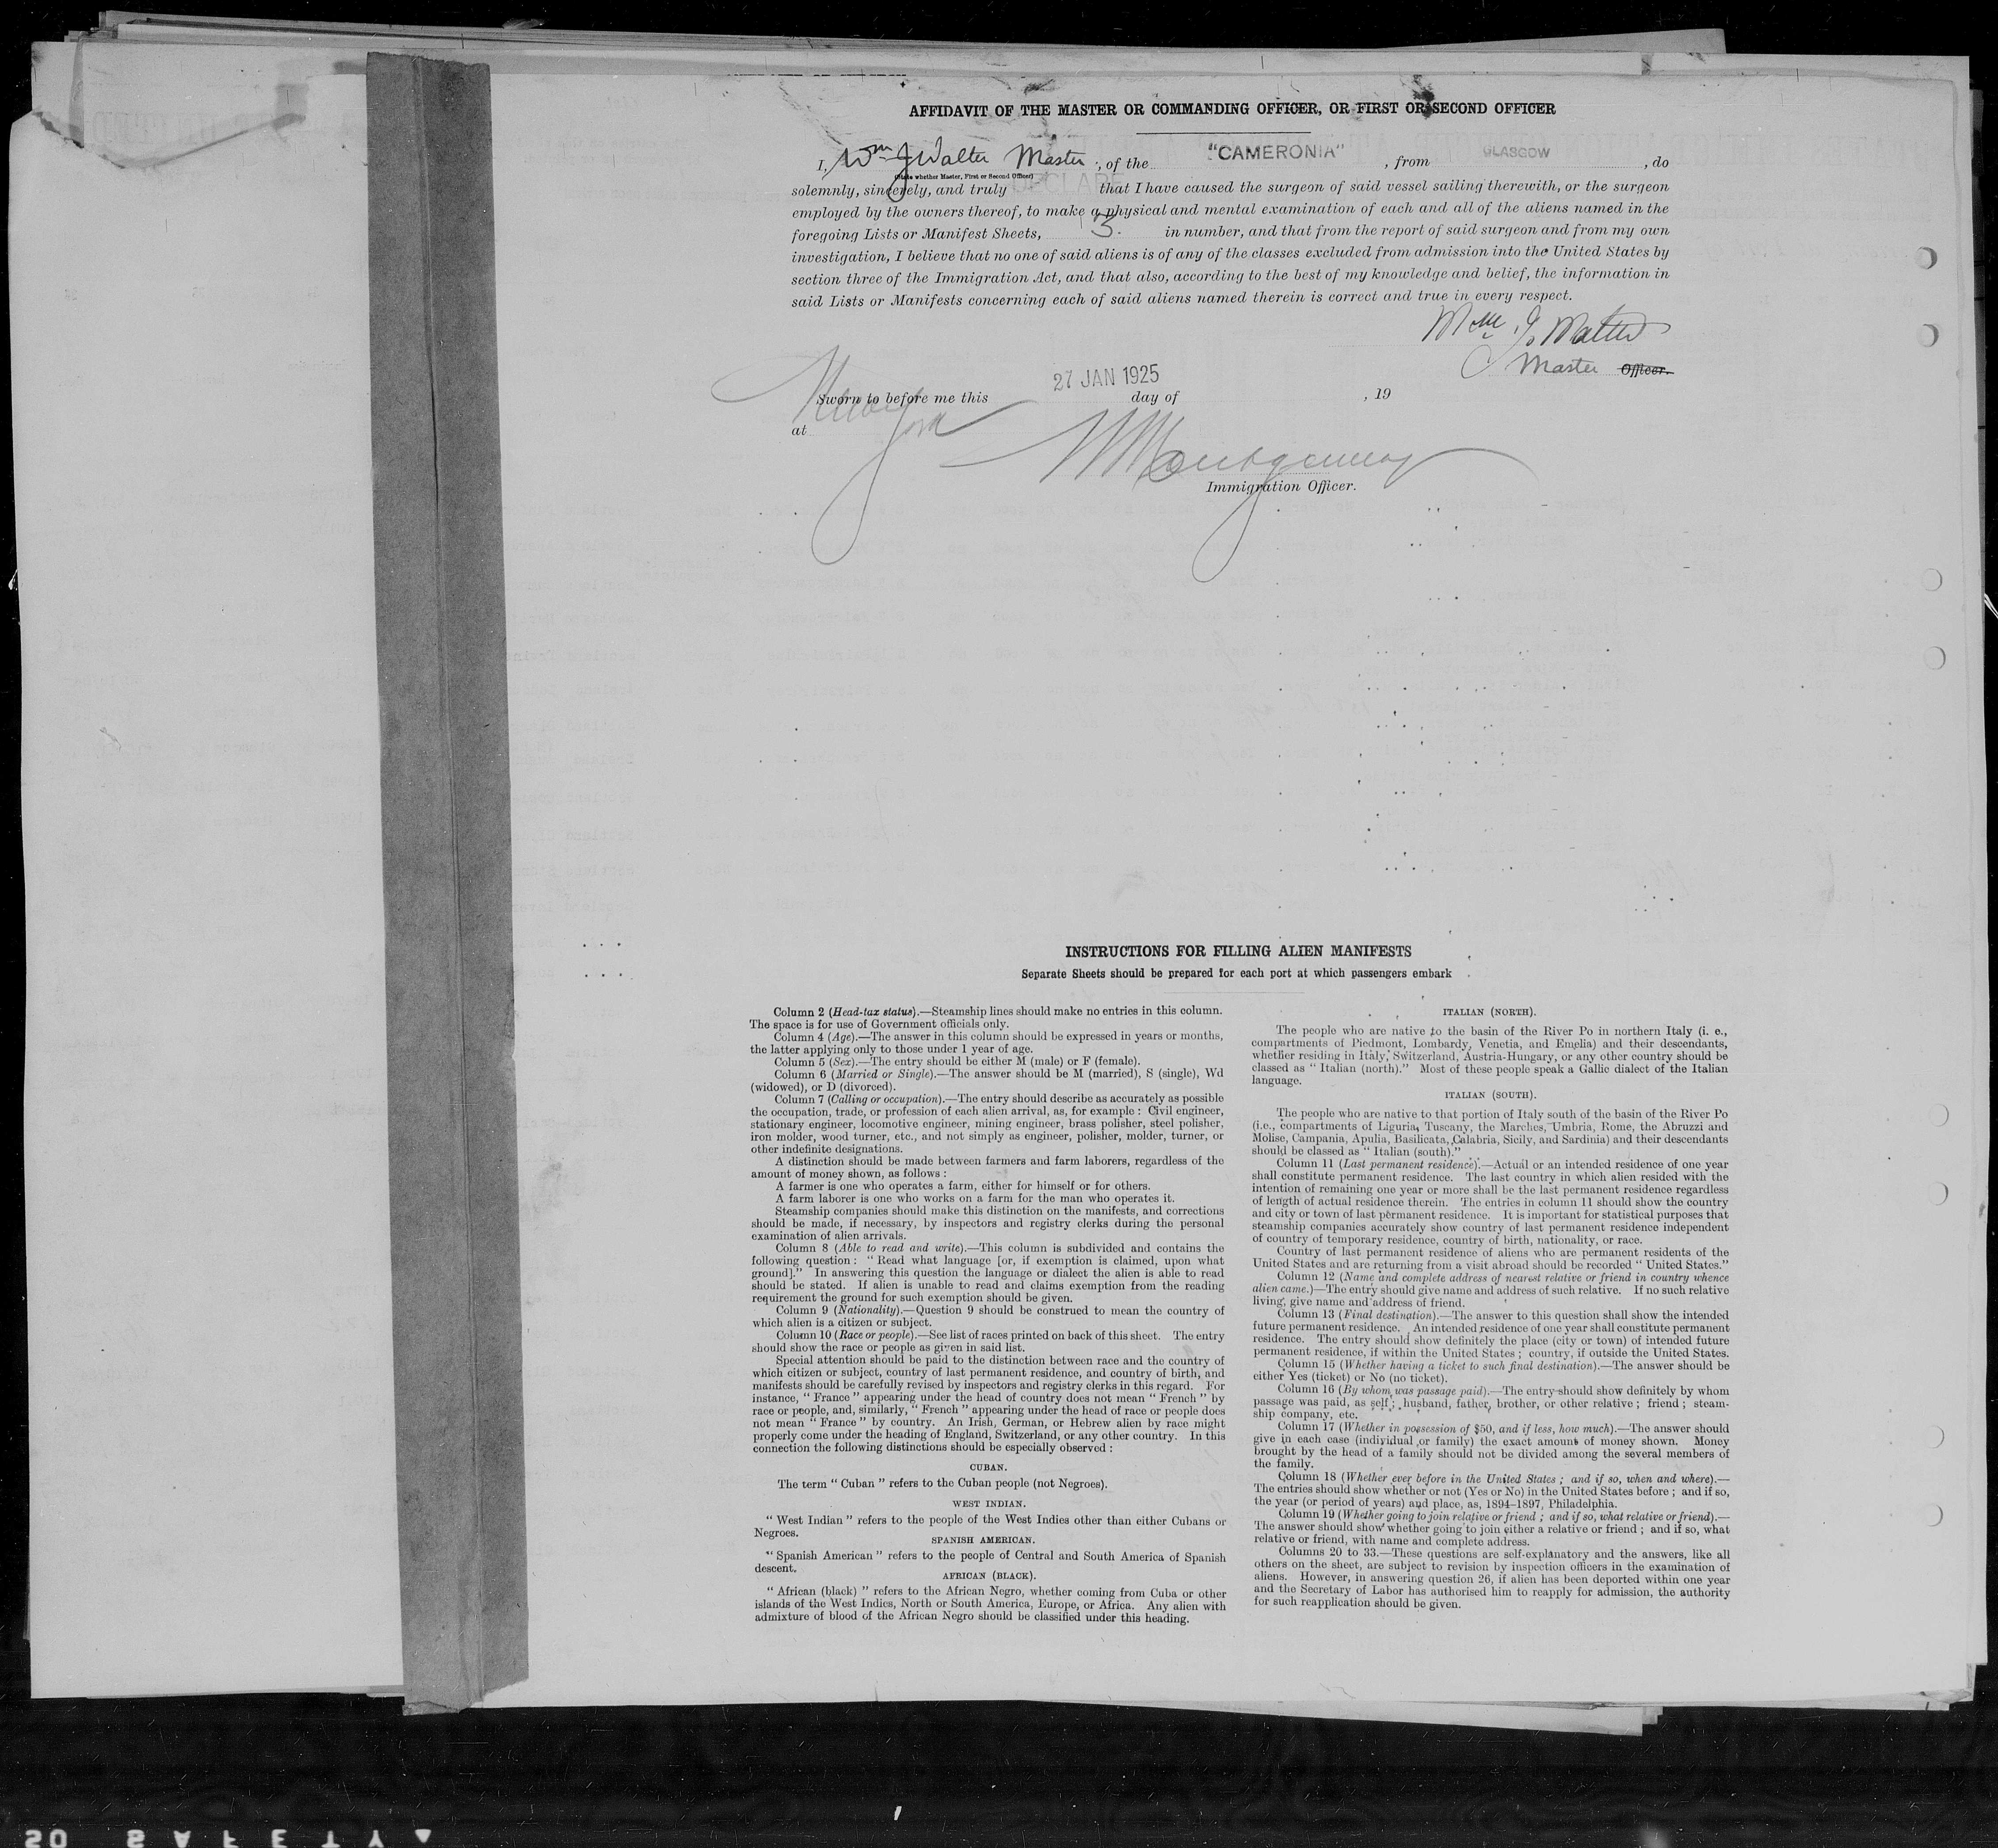 AFFIDAVIT OF THE MASTER OR COMMANDING OFFICER, OR FIRST OR SECOND OFFICER
I, Wm J Walter Master, of the "CAMERONIA", from GLASGOW, do
(State whether Master, First or Second Officer)
solemnly, sincerely, and truly DECLARE that I have caused the surgeon of said vessel sailing therewith, or the surgeon
employed by the owners thereof, to make a physical and mental examination of each and all of the aliens named in the
foregoing Lists or Manifest Sheets, 3. in number, and that from the report of said surgeon and from my own
investigation, I believe that no one of said aliens is of any of the classes excluded from admission into the United States by
section three of the Immigration Act, and that also, according to the best of my knowledge and belief, the information in
said Lists or Manifests concerning each of said aliens named therein is correct and true in every respect.
Wm J Walter
Master Officer.
27 JAN 1925
Sworn to before me this day of , 19
at New York
Montgomery
Immigration Officer.
INSTRUCTIONS FOR FILLING ALIEN MANIFESTS
Separate Sheets should be prepared for each port at which passengers embark
Column 2 (Head-tax status).—Steamship lines should make no entries in this column.
The space is for use of Government officials only.
Column 4 (Age).—The answer in this column should be expressed in years or months,
the latter applying only to those under 1 year of age.
Column 5 (Sex).—The entry should be either M (male) or F (female).
Column 6 (Married or Single).—The answer should be M (married), S (single), Wd
(widowed), or D (divorced).
Column 7 (Calling or occupation).—The entry should describe as accurately as possible
the occupation, trade, or profession of each alien arrival, as, for example : Civil engineer,
stationary engineer, locomotive engineer, mining engineer, brass polisher, steel polisher,
iron molder, wood turner, etc., and not simply as engineer, polisher, molder, turner, or
other indefinite designations.
A distinction should be made between farmers and farm laborers, regardless of the
amount of money shown, as follows :
A farmer is one who operates a farm, either for himself or for others.
A farm laborer is one who works on a farm for the man who operates it.
Steamship companies should make this distinction on the manifests, and corrections
should be made, if necessary, by inspectors and registry clerks during the personal
examination of alien arrivals.
Column 8 (Able to read and write).—This column is subdivided and contains the
following question : " Read what language [or, if exemption is claimed, upon what
ground]." In answering this question the language or dialect the alien is able to read
should be stated. If alien is unable to read and claims exemption from the reading
requirement the ground for such exemption should be given.
Column 9 (Nationality).—Question 9 should be construed to mean the country of
which alien is a citizen or subject.
Column 10 (Race or people).—See list of races printed on back of this sheet. The entry
should show the race or people as given in said list.
Special attention should be paid to the distinction between race and the country of
which citizen or subject, country of last permanent residence, and country of birth, and
manifests should be carefully revised by inspectors and registry clerks in this regard. For
instance, " France " appearing under the head of country does not mean " French " by
race or people, and, similarly, " French " appearing under the head of race or people does
not mean " France " by country. An Irish, German, or Hebrew alien by race might
properly come under the heading of England, Switzerland, or any other country. In this
connection the following distinctions should be especially observed :
CUBAN.
The term " Cuban " refers to the Cuban people (not Negroes).
WEST INDIAN.
" West Indian " refers to the people of the West Indies other than either Cubans or
Negroes.
SPANISH AMERICAN.
" Spanish American " refers to the people of Central and South America of Spanish
descent.
AFRICAN (BLACK).
" African (black) " refers to the African Negro, whether coming from Cuba or other
islands of the West Indies, North or South America, Europe, or Africa. Any alien with
admixture of blood of the African Negro should be classified under this heading.
ITALIAN (NORTH).
The people who are native to the basin of the River Po in northern Italy (i. e.,
compartments of Piedmont, Lombardy, Venetia, and Emelia) and their descendants,
whether residing in Italy, Switzerland, Austria-Hungary, or any other country should be
classed as " Italian (north)." Most of these people speak a Gallic dialect of the Italian
language.
ITALIAN (SOUTH).
The people who are native to that portion of Italy south of the basin of the River Po
(i.e., compartments of Liguria, Tuscany, the Marches, Umbria, Rome, the Abruzzi and
Molise, Campania, Apulia, Basilicata, Calabria, Sicily, and Sardinia) and their descendants
should be classed as " Italian (south)."
Column 11 (Last permanent residence).—Actual or an intended residence of one year
shall constitute permanent residence. The last country in which alien resided with the
intention of remaining one year or more shall be the last permanent residence regardless
of length of actual residence therein. The entries in column 11 should show the country
and city or town of last permanent residence. It is important for statistical purposes that
steamship companies accurately show country of last permanent residence independent
of country of temporary residence, country of birth, nationality, or race.
Country of last permanent residence of aliens who are permanent residents of the
United States and are returning from a visit abroad should be recorded " United States."
Column 12 (Name and complete address of nearest relative or friend in country whence
alien came.)—The entry should give name and address of such relative. If no such relative
living, give name and address of friend.
Column 13 (Final destination).—The answer to this question shall show the intended
future permanent residence. An intended residence of one year shall constitute permanent
residence. The entry should show definitely the place (city or town) of intended future
permanent residence, if within the United States ; country, if outside the United States.
Column 15 (Whether having a ticket to such final destination).—The answer should be
either Yes (ticket) or No (no ticket).
Column 16 (By whom was passage paid).—The entry should show definitely by whom
passage was paid, as self ; husband, father, brother, or other relative ; friend ; steam-
ship company, etc.
Column 17 (Whether in possession of $50, and if less, how much).—The answer should
give in each case (individual or family) the exact amount of money shown. Money
brought by the head of a family should not be divided among the several members of
the family.
Column 18 (Whether ever before in the United States ; and if so, when and where).—
The entries should show whether or not (Yes or No) in the United States before ; and if so,
the year (or period of years) and place, as, 1894–1897, Philadelphia.
Column 19 (Whether going to join relative or friend ; and if so, what relative or friend).—
The answer should show whether going to join either a relative or friend ; and if so, what
relative or friend, with name and complete address.
Columns 20 to 33.—These questions are self-explanatory and the answers, like all
others on the sheet, are subject to revision by inspection officers in the examination of
aliens. However, in answering question 26, if alien has been deported within one year
and the Secretary of Labor has authorised him to reapply for admission, the authority
for such reapplication should be given.
SAFETY